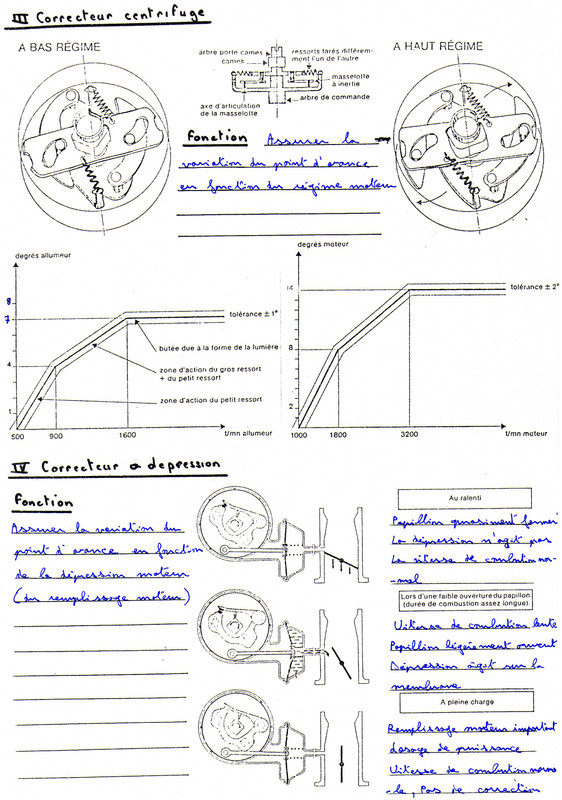 III Correcteur centrifuge
A BAS RÉGIME
arbre porte cames
cames
ressorts tarés différem-
ment l'un de l'autre
masselotte
à inertie
axe d'articulation
de la masselotte
arbre de commande
A HAUT RÉGIME
Fonction Assurer la
variation du point d'avance
en fonction du régime moteur
degrés allumeur
8
7
4
1
tolérance ± 1°
butée due à la forme de la lumière
zone d'action du gros ressort
+ du petit ressort
zone d'action du petit ressort
500 900 1600 t/mn allumeur
degrés moteur
14
8
2
tolérance ± 2°
1000 1800 3200 t/mn moteur
IV Correcteur a depression
Fonction
Assurer la variation du
point d'avance en fonction
de la dépression moteur
(du remplissage moteur)
Au ralenti
Papillon quasiment fermé
La dépression n'agit pas
La vitesse de combustion nor-
mal
Lors d'une faible ouverture du papillon
(durée de combustion assez longue).
Vitesse de combution lente
Papillon légèrement ouvert
Dépression agit sur la
membrave
A pleine charge
Remplissage moteur important
dosage de puissance
Vitesse de combustion norma
-le, Pas de correction